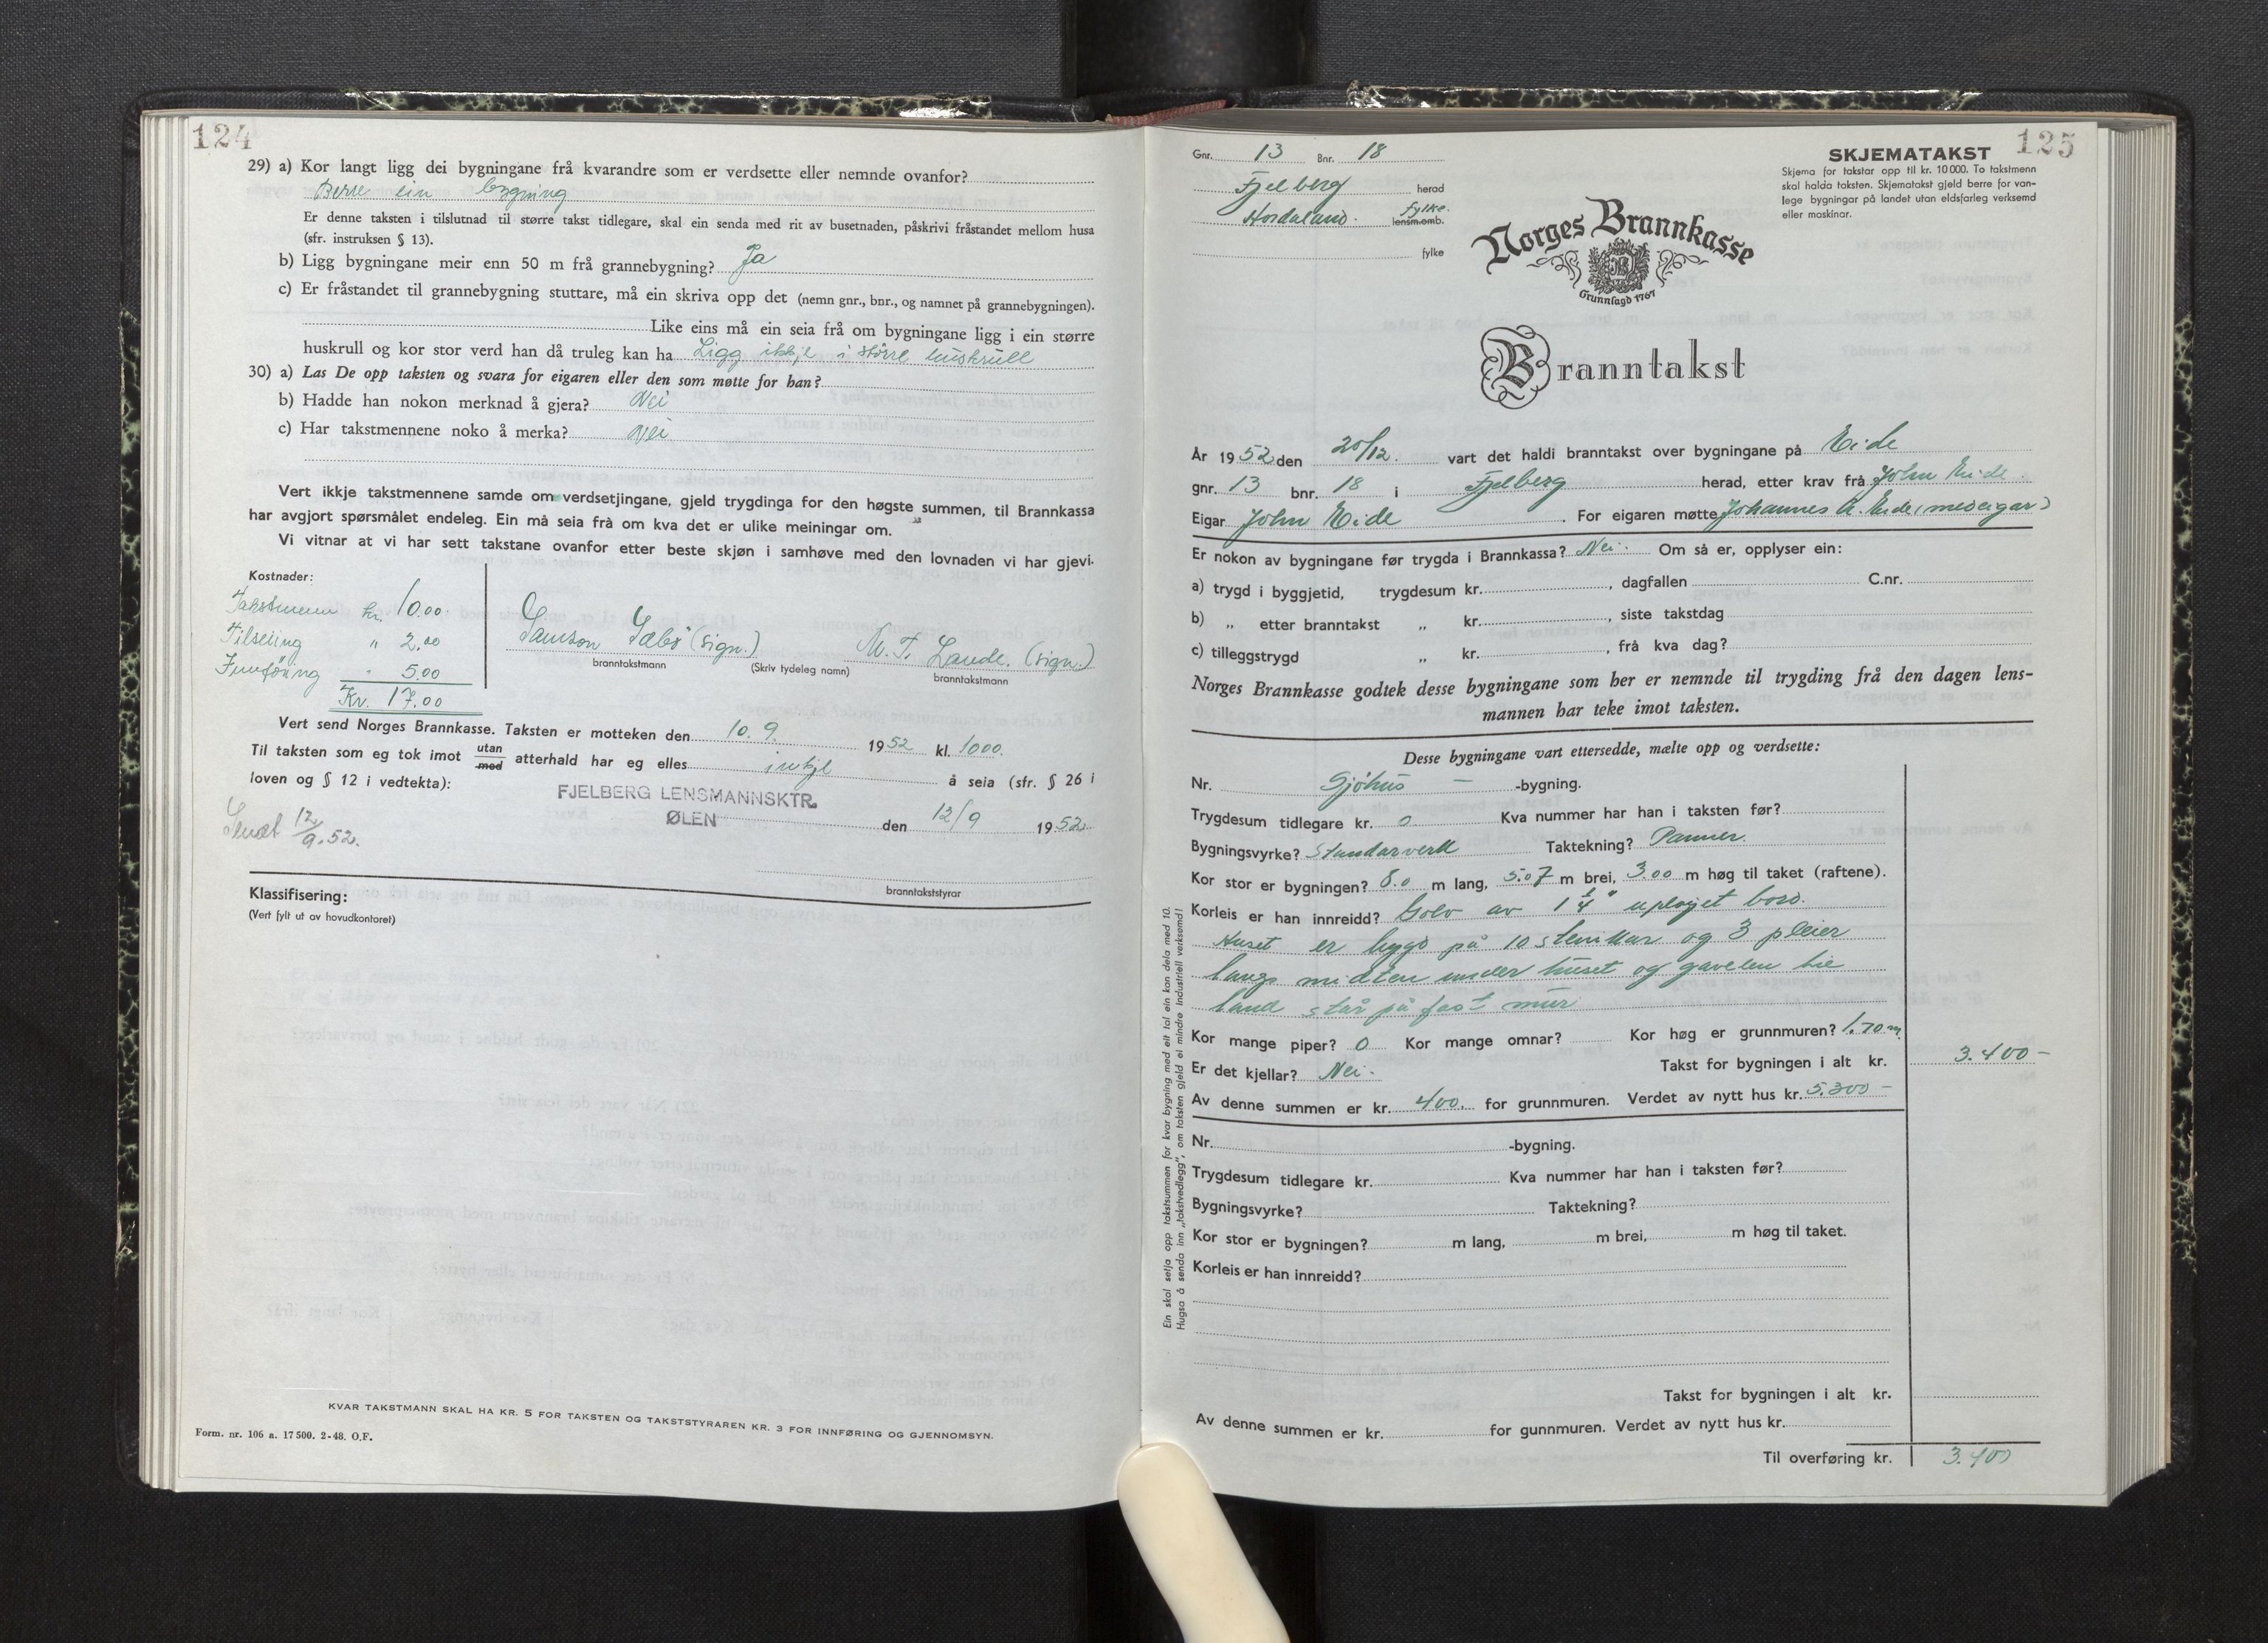 124
29) a) Kor langt ligg dei bygningane frå kvarandre som er verdsette eller nemnde ovanfor?
Berre ein bygning
Er denne taksten i tilslutnad til større takst tidlegare, skal ein senda med rit av busetnaden, påskrivi fråstandet mellom husa
(sfr. instruksen § 13).
b) Ligg bygningane meir enn 50 m frå grannebygning? Ja
c) Er fråstandet til grannebygning stuttare, må ein skriva opp det (nemn gnr., bnr., og namnet på grannebygningen).
Like eins må ein seia frå om bygningane ligg i ein større
huskrull og kor stor verd han då truleg kan ha Ligg ikkje i större huskrull
30) a) Las De opp taksten og svara for eigaren eller den som møtte for han?
b) Hadde han nokon merknad å gjera? Nei
c) Har takstmennene noko å merka? Nei
Vert ikkje takstmennene samde om verdsetjingane, gjeld trygdinga for den høgste summen, til Brannkassa
har avgjort spørsmålet endeleg. Ein må seia frå om kva det er ulike meiningar om.
Vi vitnar at vi har sett takstane ovanfor etter beste skjøn i samhøve med den lovnaden vi har gjevi.
Kostnader:
Takstmenn kr. 10.00
Tilseiing " 2.00
Innföring " 5.00
Kr. 17.00
Samson Sæbö (sign.) M. T. Lande. (sign.)
branntakstmann (Skriv tydeleg namn) branntakstmann
Vert send Norges Brannkasse. Taksten er motteken den 10. 9. 1952 kl. 1000.
Til taksten som eg tok imot utan med atterhald har eg elles inkje å seia (sfr. § 26 i
loven og § 12 i vedtekta):
FJELBERG LENSMANNSKTR.
ØLEN
den 12/9 1952
Sendt 12/9.52.
branntakststyrar
Klassifisering:
(Vert fylt ut av hovudkontoret)
KVAR TAKSTMANN SKAL HA KR. 5 FOR TAKSTEN OG TAKSTSTYRAREN KR. 3 FOR INNFØRING OG GJENNOMSYN.
Form. nr. 106 a. 17 500. 2-48. O.F.
125
Gnr. 13 Bnr. 18
Fjelberg herad
Hordaland. fylke. lensm.omb.
fylke
SKJEMATAKST
Skjema for takstar opp til kr. 10 000. To takstmenn
skal halda taksten. Skjematakst gjeld berre for van-
lege bygningar på landet utan eldsfarleg verksemd
eller maskinar.
Norges Brannkasse
Grunnlagd 1767
Branntakst
År 1952 den 20/12. vart det haldi branntakst over bygningane på Eide
gnr. 13 bnr. 18 i Fjelberg herad, etter krav frå John Eide.
Eigar John Eide. For eigaren møtte Johannes A. Eide (medeigar)
Er nokon av bygningane før trygda i Brannkassa? Nei. Om så er, opplyser ein:
a) trygd i byggjetid, trygdesum kr. , dagfallen C.nr.
b) „ etter branntakst „ kr. , siste takstdag
c) tilleggstrygd „ kr. , frå kva dag?
Norges Brannkasse godtek desse bygningane som her er nemnde til trygding frå den dagen lens-
mannen har teke imot taksten.
Desse bygningane vart ettersedde, mælte opp og verdsette:
Nr. Sjöhus – -bygning.
Trygdesum tidlegare kr. 0. Kva nummer har han i taksten før?
Bygningsvyrke? Standarverk Taktekning? Panner.
Kor stor er bygningen? 8.0 m lang, 5.07 m brei, 3.00 m høg til taket (raftene).
Korleis er han innreidd? Golv av 1 1/4" uplöyet bord.
Huset er bygd på 10 stenkar og 3 pleier
langs midten under huset og gavelen tie
land står på fast mur
Kor mange piper? 0 Kor mange omnar? Kor høg er grunnmuren? 1.70 m
Er det kjellar? Nei. Takst for bygningen i alt kr. 3.400 –
Av denne summen er kr. 400. for grunnmuren. Verdet av nytt hus kr. 5.300 –
Nr. -bygning.
Trygdesum tidlegare kr. Kva nummer har han i taksten før?
Bygningsvyrke? Taktekning?
Kor stor er bygningen? m lang, m brei, m høg til taket.
Korleis er han innreidd?
Takst for bygningen i alt kr.
Av denne summen er kr. for gunnmuren. Verdet av nytt hus kr.
Til overføring kr. 3.400
Ein skal setja opp takstsummen for kvar bygning med eit tal ein kan dela med 10.
Hugsa å senda inn „takstvedlegg", om taksten gjeld ei mindre industriell verksemd!